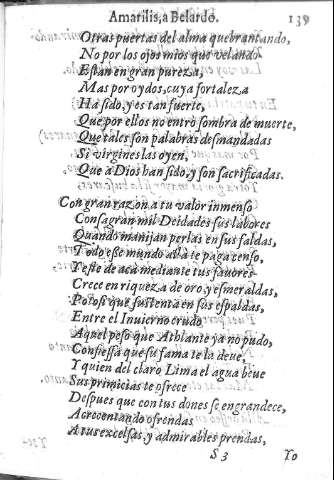 Amarilis, a Belardo. 139
Otras puertas del alma quebrantando,
No por los ojos mios que velando
Estan en gran pureza,
Mas por oydos, cuya fortaleza
Ha sido, y es tan fuerte,
Que por ellos no entrò sombra de muerte,
Que tales son palabras desmandadas
Si virgines las oyen,
Que a Dios han sido, y son sacrificadas.
Con gran razon a tu valor inmenso
Consagran mil Deidades sus labores
Quando manijan perlas en sus faldas,
Todo esse mundo allà te paga censo,
Y este de acà mediante tus fauores
Crece en riqueza de oro y esmeraldas,
Potosi que sustenta en sus espaldas,
Entre el Inuierno crudo
Aquel peso que Athlante ya no pudo,
Confiessa que su fama te la deue,
Y quien del claro Lima el agua beue
Sus primicias te ofrece
Despues que con tus dones se engrandece,
Acrecentando ofrendas
A tus excelsas, y admirables prendas,
S 3 Yo